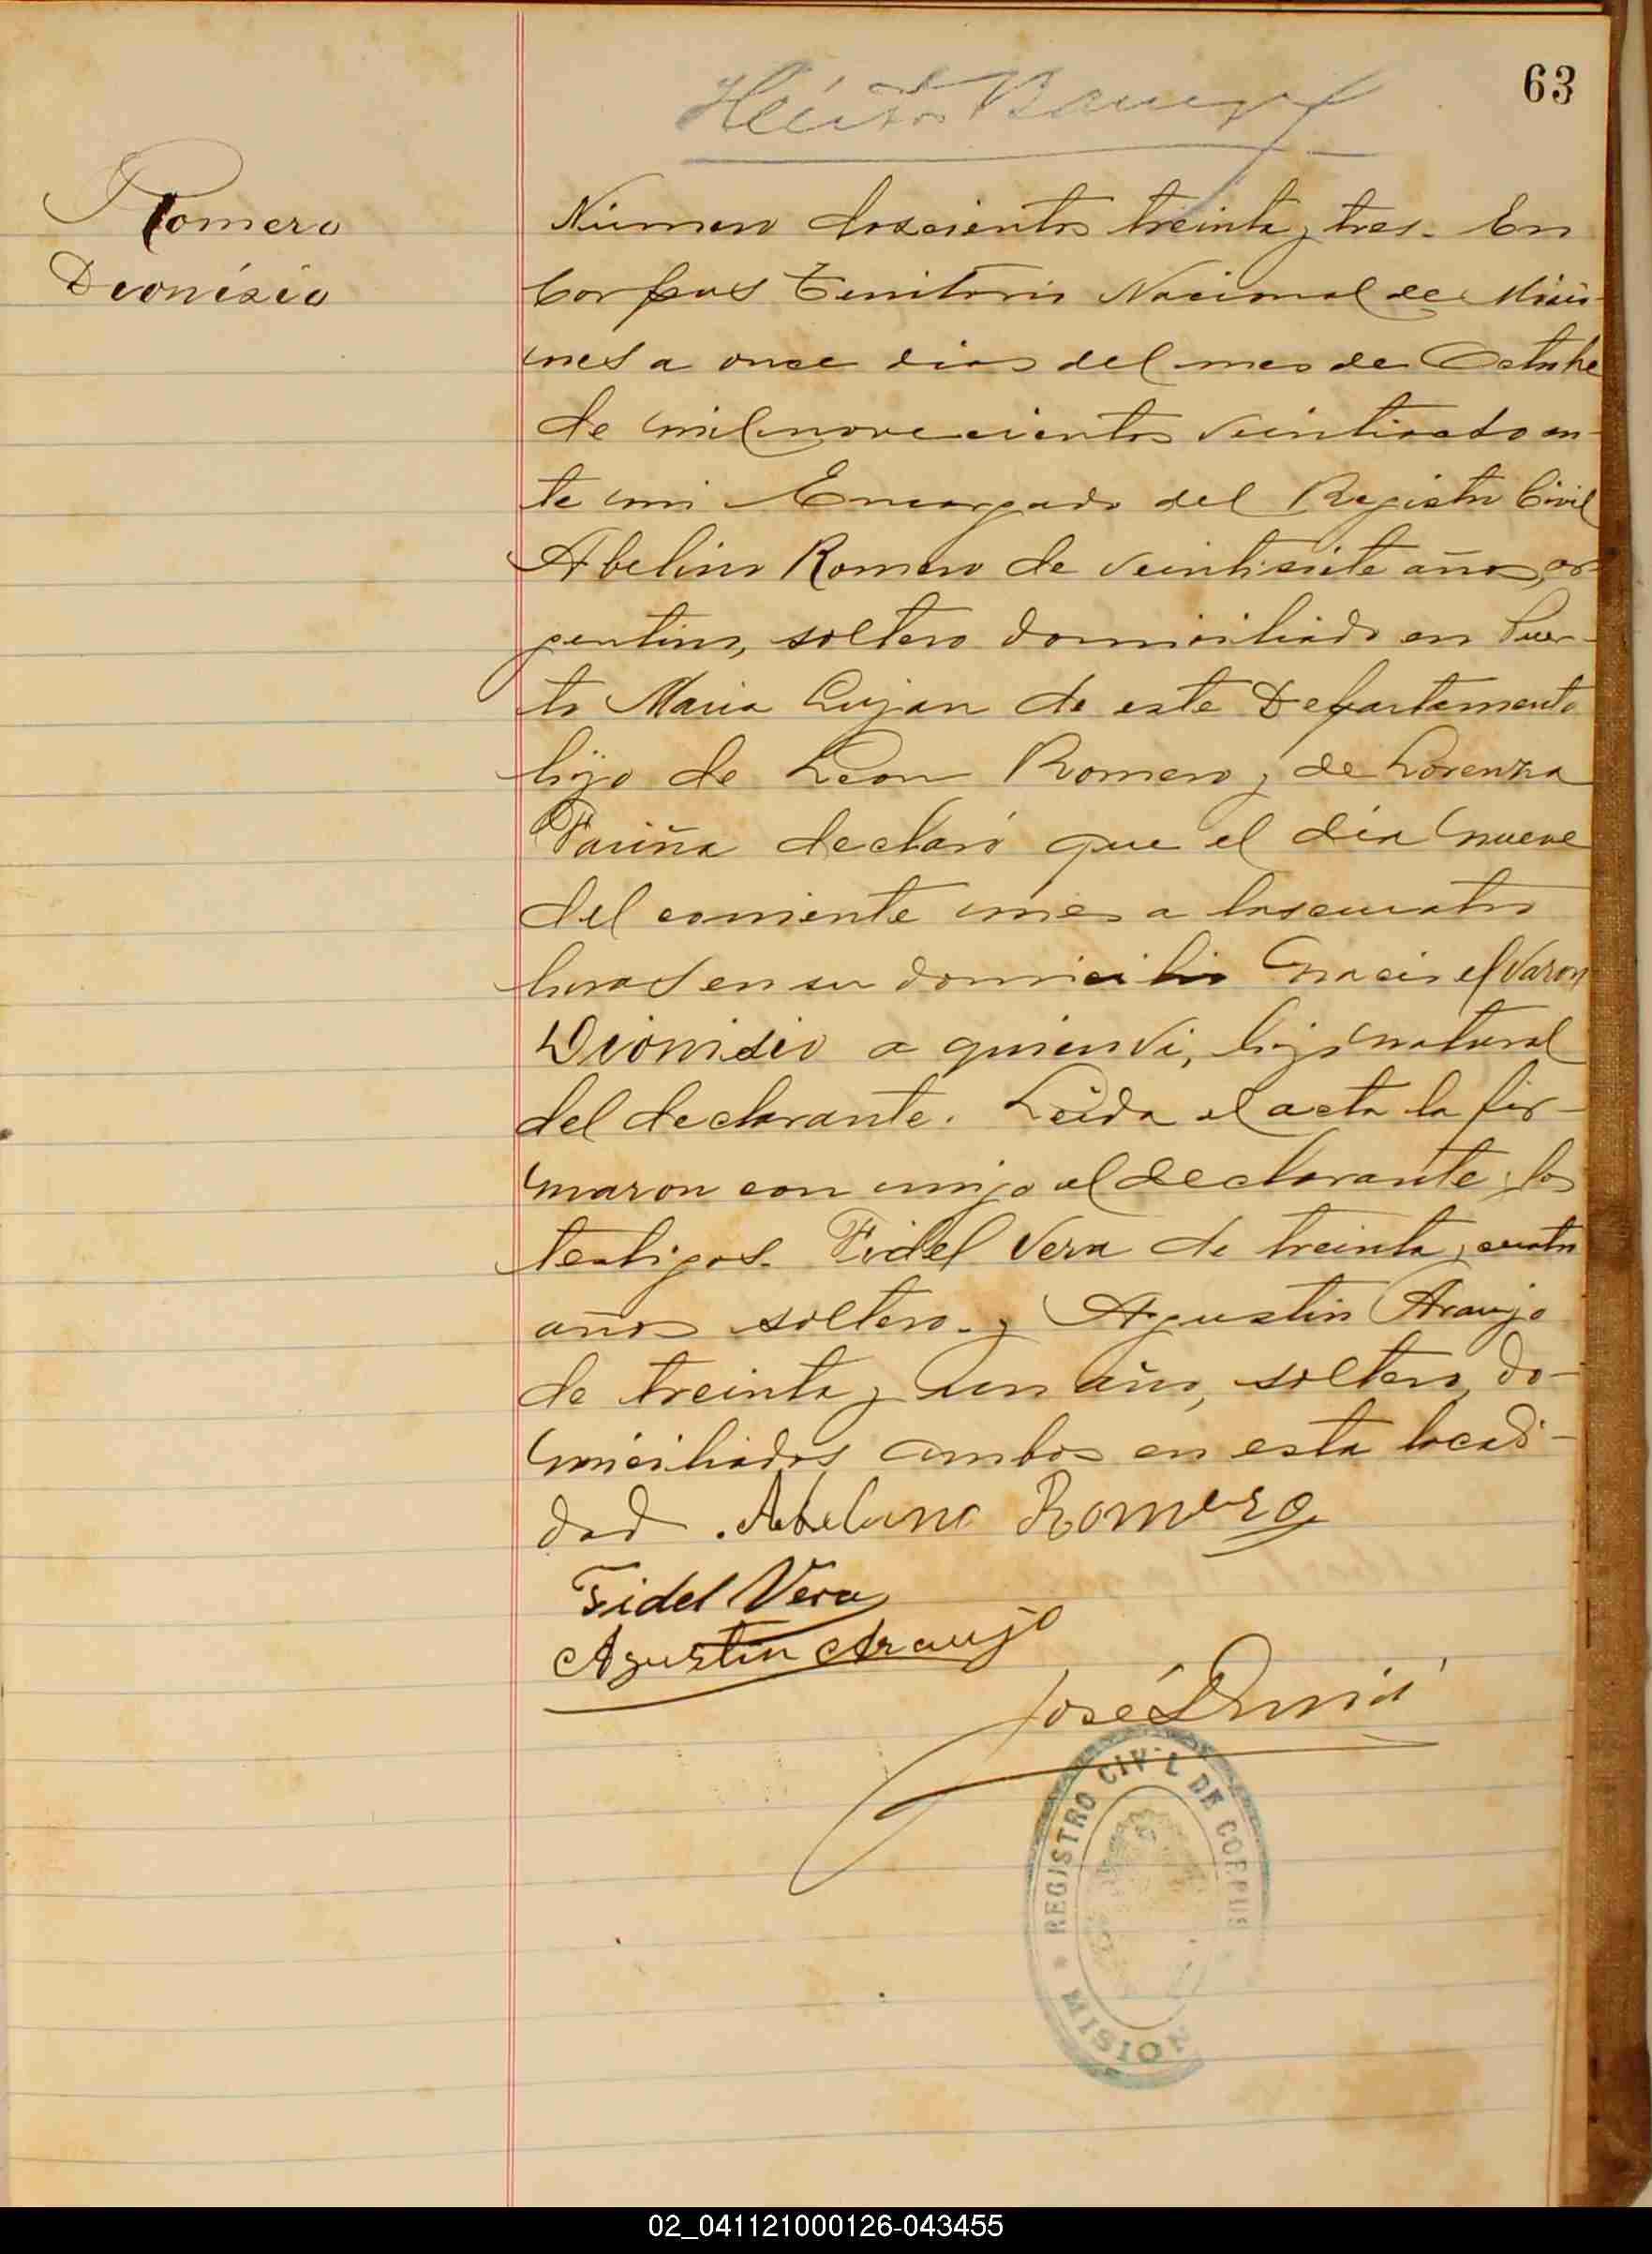 63
Romero
Dionisio
Número doscientos treinta y tres. En
Corpus Territorio Nacional de Misio-
nes a once dias del mes de Octubre
de mil novecientos veintiocho an-
te mi Encargado del Registro Civil
Abelino Romero de veintisiete años, ar-
gentino, soltero domiciliado en Puer-
to Maria Lujan de este Departamento
hijo de Leon Romero y de Lorenza
Fariña declaró que el dia nueve
del corriente mes a las cuatro
horas en su domicilio nacio el varon
Dionisio a quien vi, hijo natural
del declarante. Leida el acta la fir-
maron con migo el declarante y los
testigos. Fidel Vera de treinta y cuatro
años soltero. y Agustin Araujo
de treinta y un año, soltero, do-
miciliados ambos en esta locali-
dad. Abelino Romero
Fidel Vera
Agustin Araujo
José
REGISTRO CIVIL DE CORPUS
MISION
02_041121000126-043455